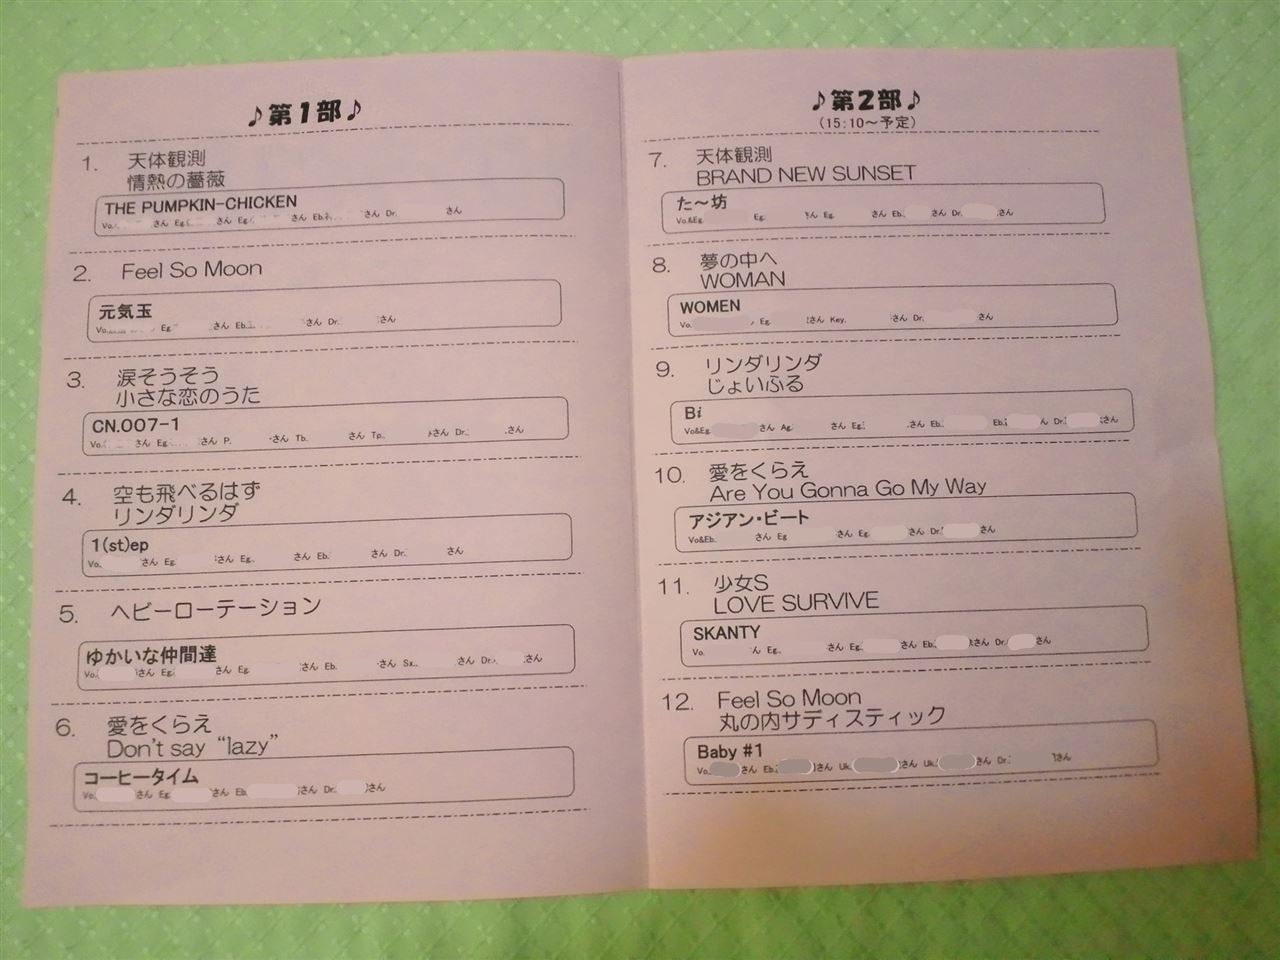 ♪第1部♪
1. 天体観測
情熱の薔薇
THE PUMPKIN-CHICKEN
Vo. さん Eg. さん Eg. さん Eb. さん Dr. さん
2. Feel So Moon
元気玉
Vo. Eg. さん Eb. さん Dr. さん
3. 涙そうそう
小さな恋のうた
CN.007-1
Vo. さん Eg. さん P. さん Tb. さん Tp. さん Dr. さん
4. 空も飛べるはず
リンダリンダ
1(st)ep
Vo. さん Eg. さん Eg. さん Eb. さん Dr. さん
5. ヘビーローテーション
ゆかいな仲間達
Vo. さん Eg. さん Eg. さん Eb. さん Sx. さん Dr. さん
6. 愛をくらえ
Don't say “lazy”
コーヒータイム
Vo. さん Eg. さん Eb. さん Dr. さん
♪第2部♪
(15:10～予定)
7. 天体観測
BRAND NEW SUNSET
た～坊
Vo&Eg. Eg. さん Eg. さん Eb. さん Dr. さん
8. 夢の中へ
WOMAN
WOMEN
Vo. Eg. さん Key. さん Dr. さん
9. リンダリンダ
じょいふる
Bi
Vo&Eg. さん Ag. さん Eg. さん Eb. Eb. さん Dr. さん
10. 愛をくらえ
Are You Gonna Go My Way
アジアン・ビート
Vo&Eb. さん Eg. さん Eg. さん Dr. さん
11. 少女S
LOVE SURVIVE
SKANTY
Vo. ん Eg. さん Eg. さん Eb. さん Dr. さん
12. Feel So Moon
丸の内サディスティック
Baby #1
Vo. さん Eb. さん Uk. さん Uk. さん Dr. さん